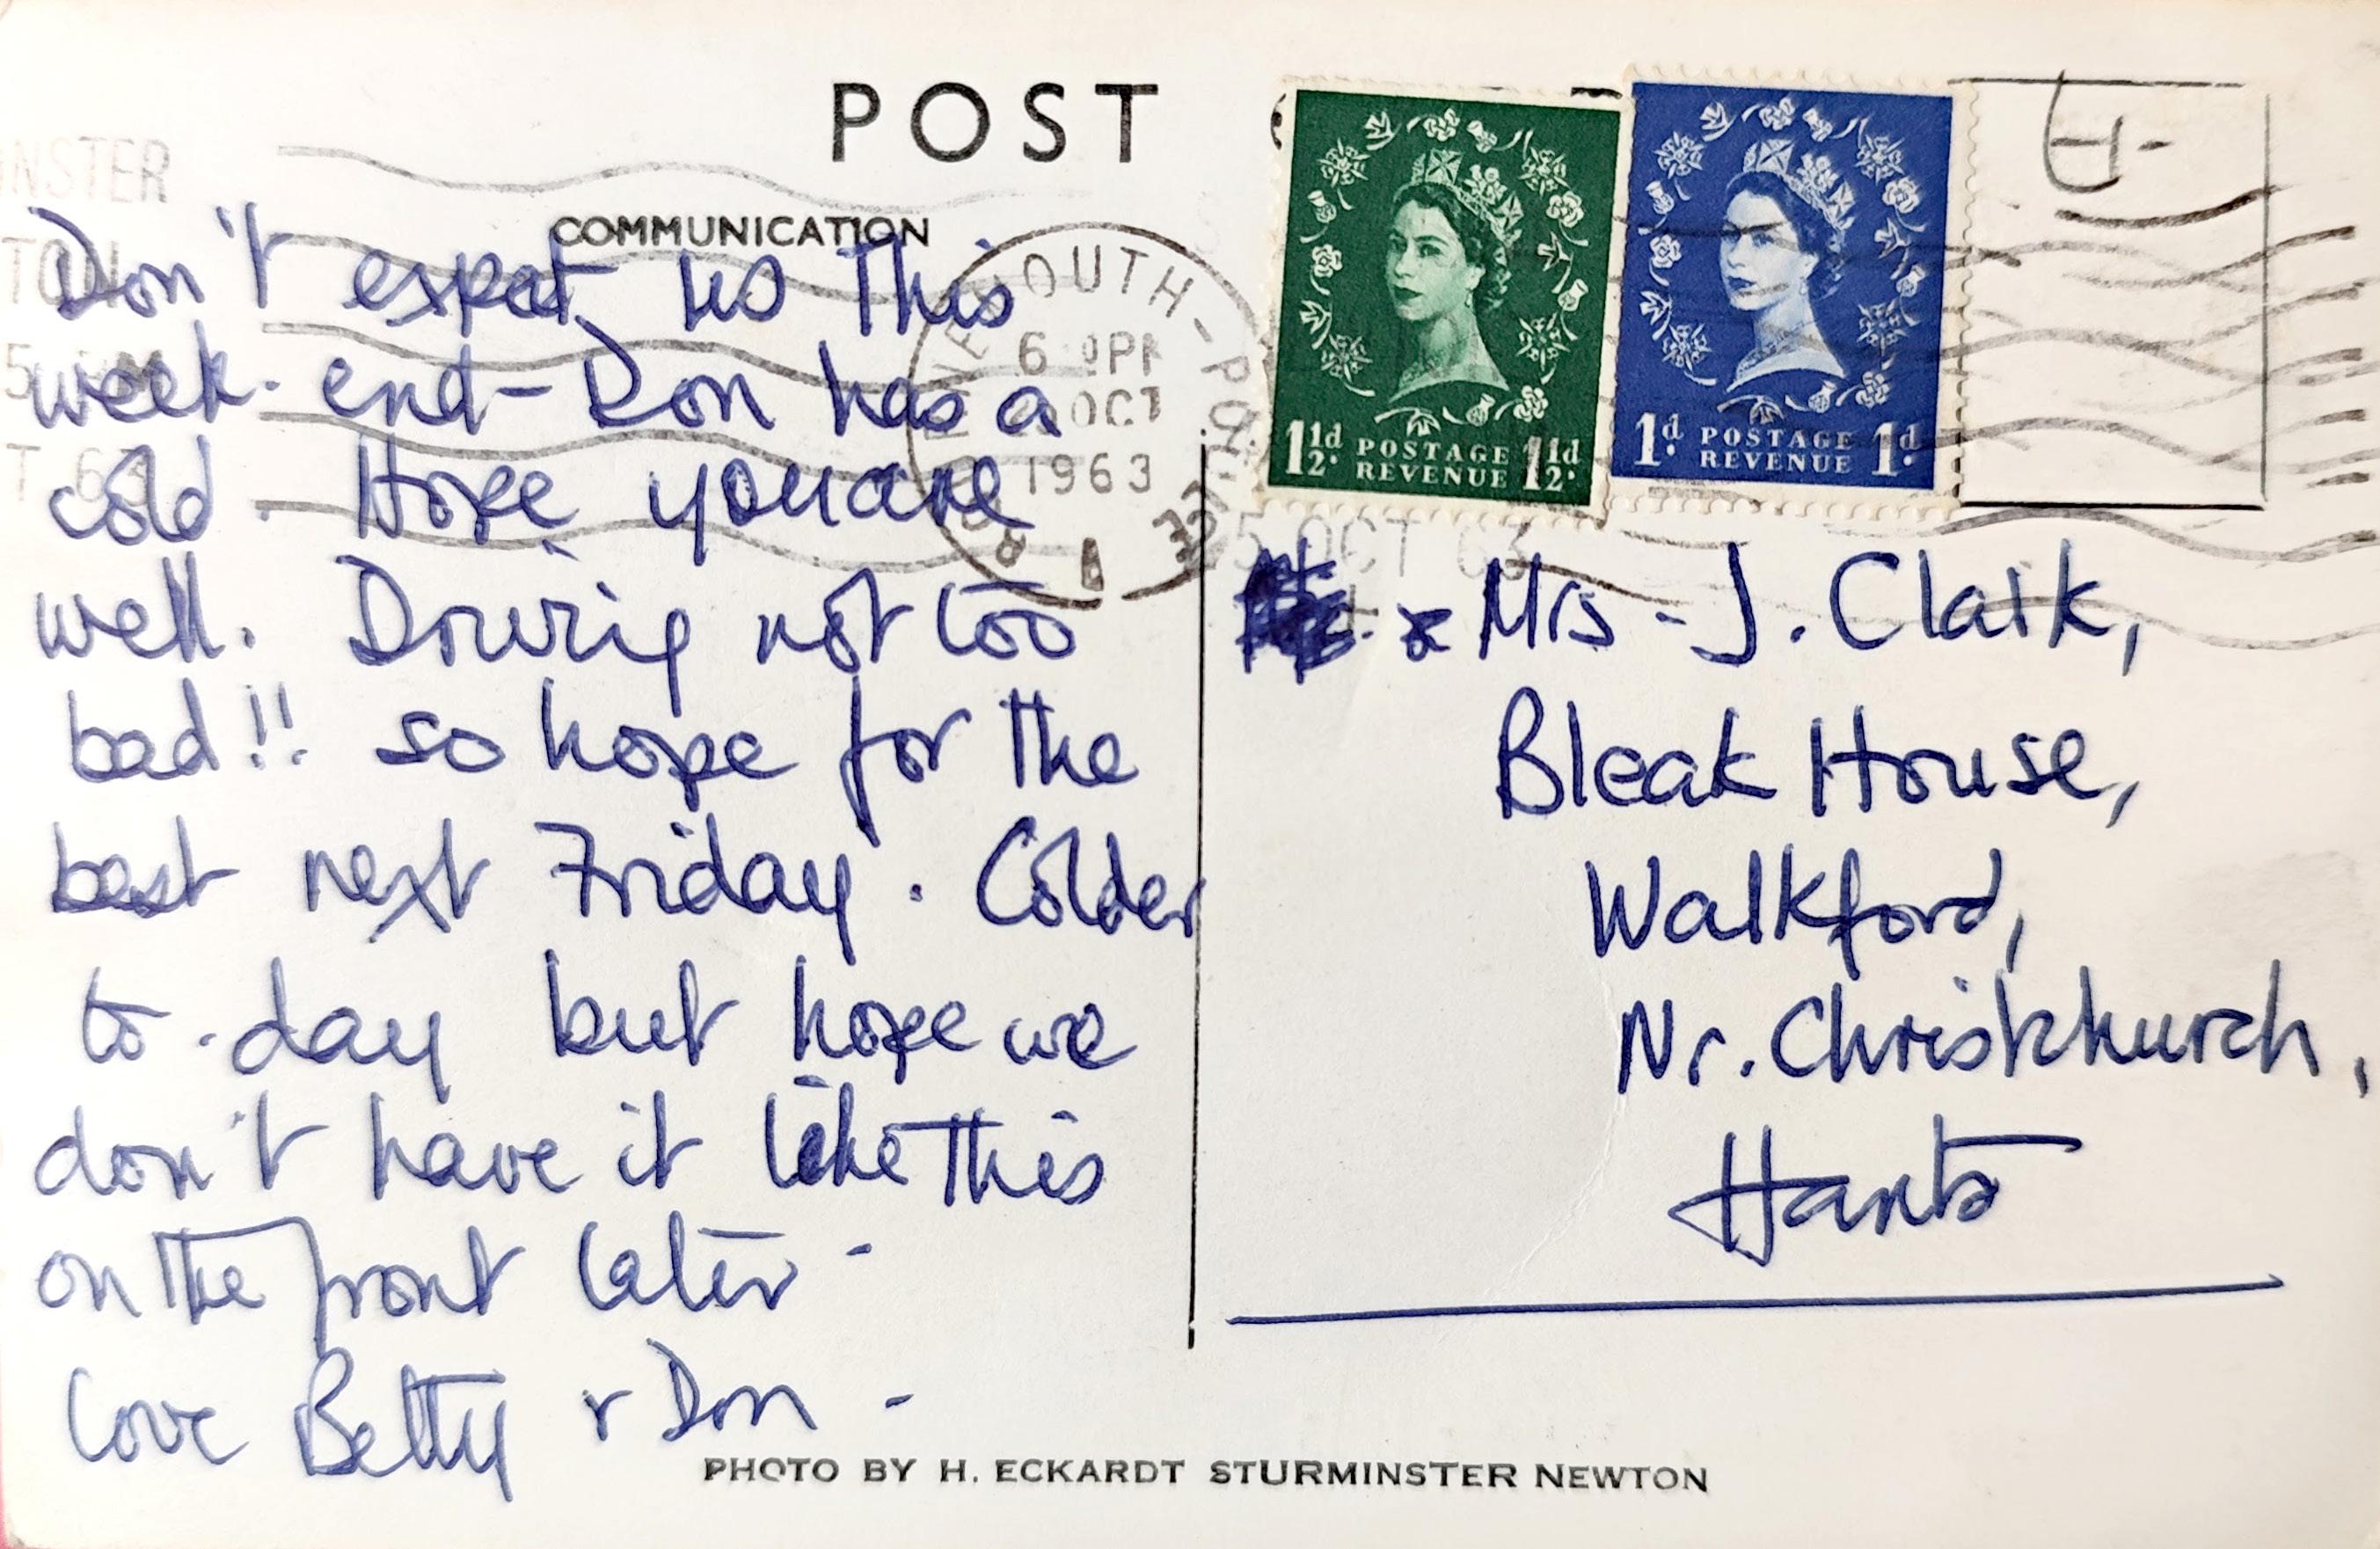 POST
COMMUNICATION
Don't expect us this
week-end - Don has a
cold. Hope you are
well. Driving not too
bad!! so hope for the
best next Friday. Colder
to-day but hope we
don't have it like this
on the front later -
Love Betty & Don -
NSTER
TON
5 PM
T 63
OUTH - POOLE
6 PM
OCT
1963
A
1½d. POSTAGE 1½d.
REVENUE
1d. POSTAGE 1d.
REVENUE
5 OCT 63
Mrs - J. Clark,
Bleak House,
Walkford,
Nr. Christchurch,
Hants
PHOTO BY H. ECKARDT STURMINSTER NEWTON